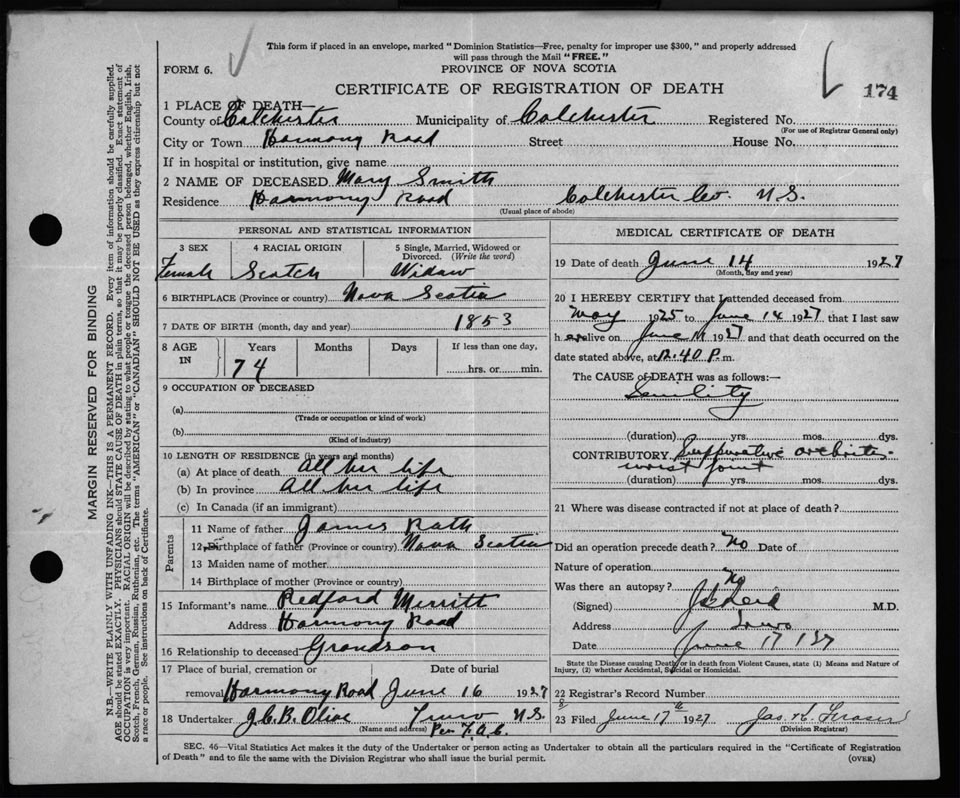 This form if placed in an envelope, marked "Dominion Statistics—Free, penalty for improper use $300," and properly addressed
will pass through the Mail "FREE."
FORM 6.
PROVINCE OF NOVA SCOTIA
CERTIFICATE OF REGISTRATION OF DEATH
174
1 PLACE OF DEATH—
County of Colchester Municipality of Colchester Registered No.
(For use of Registrar General only)
City or Town Harmony Road Street House No.
If in hospital or institution, give name
2 NAME OF DECEASED Mary Smith
Residence Harmony Road Colchester Co. N.S.
(Usual place of abode)
PERSONAL AND STATISTICAL INFORMATION
3 SEX 4 RACIAL ORIGIN 5 Single, Married, Widowed or
Divorced. (Write the word)
Female Scotch Widow
6 BIRTHPLACE (Province or country) Nova Scotia
7 DATE OF BIRTH (month, day and year) 1853
8 AGE IN Years Months Days If less than one day,
74 hrs. or min.
9 OCCUPATION OF DECEASED
(a)
(Trade or occupation or kind of work)
(b)
(Kind of industry)
10 LENGTH OF RESIDENCE (in years and months)
(a) At place of death all her life
(b) In province All her life
(c) In Canada (if an immigrant)
Parents
11 Name of father James
12 Birthplace of father (Province or country) Nova Scotia
13 Maiden name of mother
14 Birthplace of mother (Province or country)
15 Informant's name Redford Merritt
Address Harmony Road
16 Relationship to deceased Grandson
17 Place of burial, cremation or Date of burial
removal Harmony Road June 16 1927
18 Undertaker J.C.B. Olive Truro N.S.
(Name and address) Per F.A.C.
MEDICAL CERTIFICATE OF DEATH
19 Date of death June 14 1927
(Month, day and year)
20 I HEREBY CERTIFY that I attended deceased from
May 1925 to June 14 1927 that I last saw
h er alive on June 1927 and that death occurred on the
date stated above, at 12.40 P. m.
The CAUSE of DEATH was as follows:—
Senility
(duration) yrs. mos. dys.
CONTRIBUTORY Suppurative arthritis
wrist joint
(duration) yrs. mos. dys.
21 Where was disease contracted if not at place of death?
Did an operation precede death? No Date of
Nature of operation
Was there an autopsy? No
(Signed) M.D.
Address Truro
Date June 17
State the Disease causing Death, or in death from Violent Causes, state (1) Means and Nature of
Injury, (2) whether Accidental, Suicidal or Homicidal.
22 Registrar's Record Number
23 Filed June 17th 1927 Jas. H. Fraser
(Division Registrar)
SEC. 46—Vital Statistics Act makes it the duty of the Undertaker or person acting as Undertaker to obtain all the particulars required in the "Certificate of Registration
of Death" and to file the same with the Division Registrar who shall issue the burial permit. (OVER)
MARGIN RESERVED FOR BINDING
N.B.—WRITE PLAINLY WITH UNFADING INK—THIS IS A PERMANENT RECORD. Every item of information should be carefully supplied.
AGE should be stated EXACTLY. PHYSICIANS should STATE CAUSE OF DEATH in plain terms, so that it may be properly classified. Exact statement of
OCCUPATION is very important. RACIAL ORIGIN will be described by stating to what people or tongue the deceased person belonged, whether English, Irish,
Scotch, French, German, Russian, Ruthenian, etc. The terms "AMERICAN" or "CANADIAN" SHOULD NOT BE USED as they express citizenship but not
a race or people. See instructions on back of Certificate.